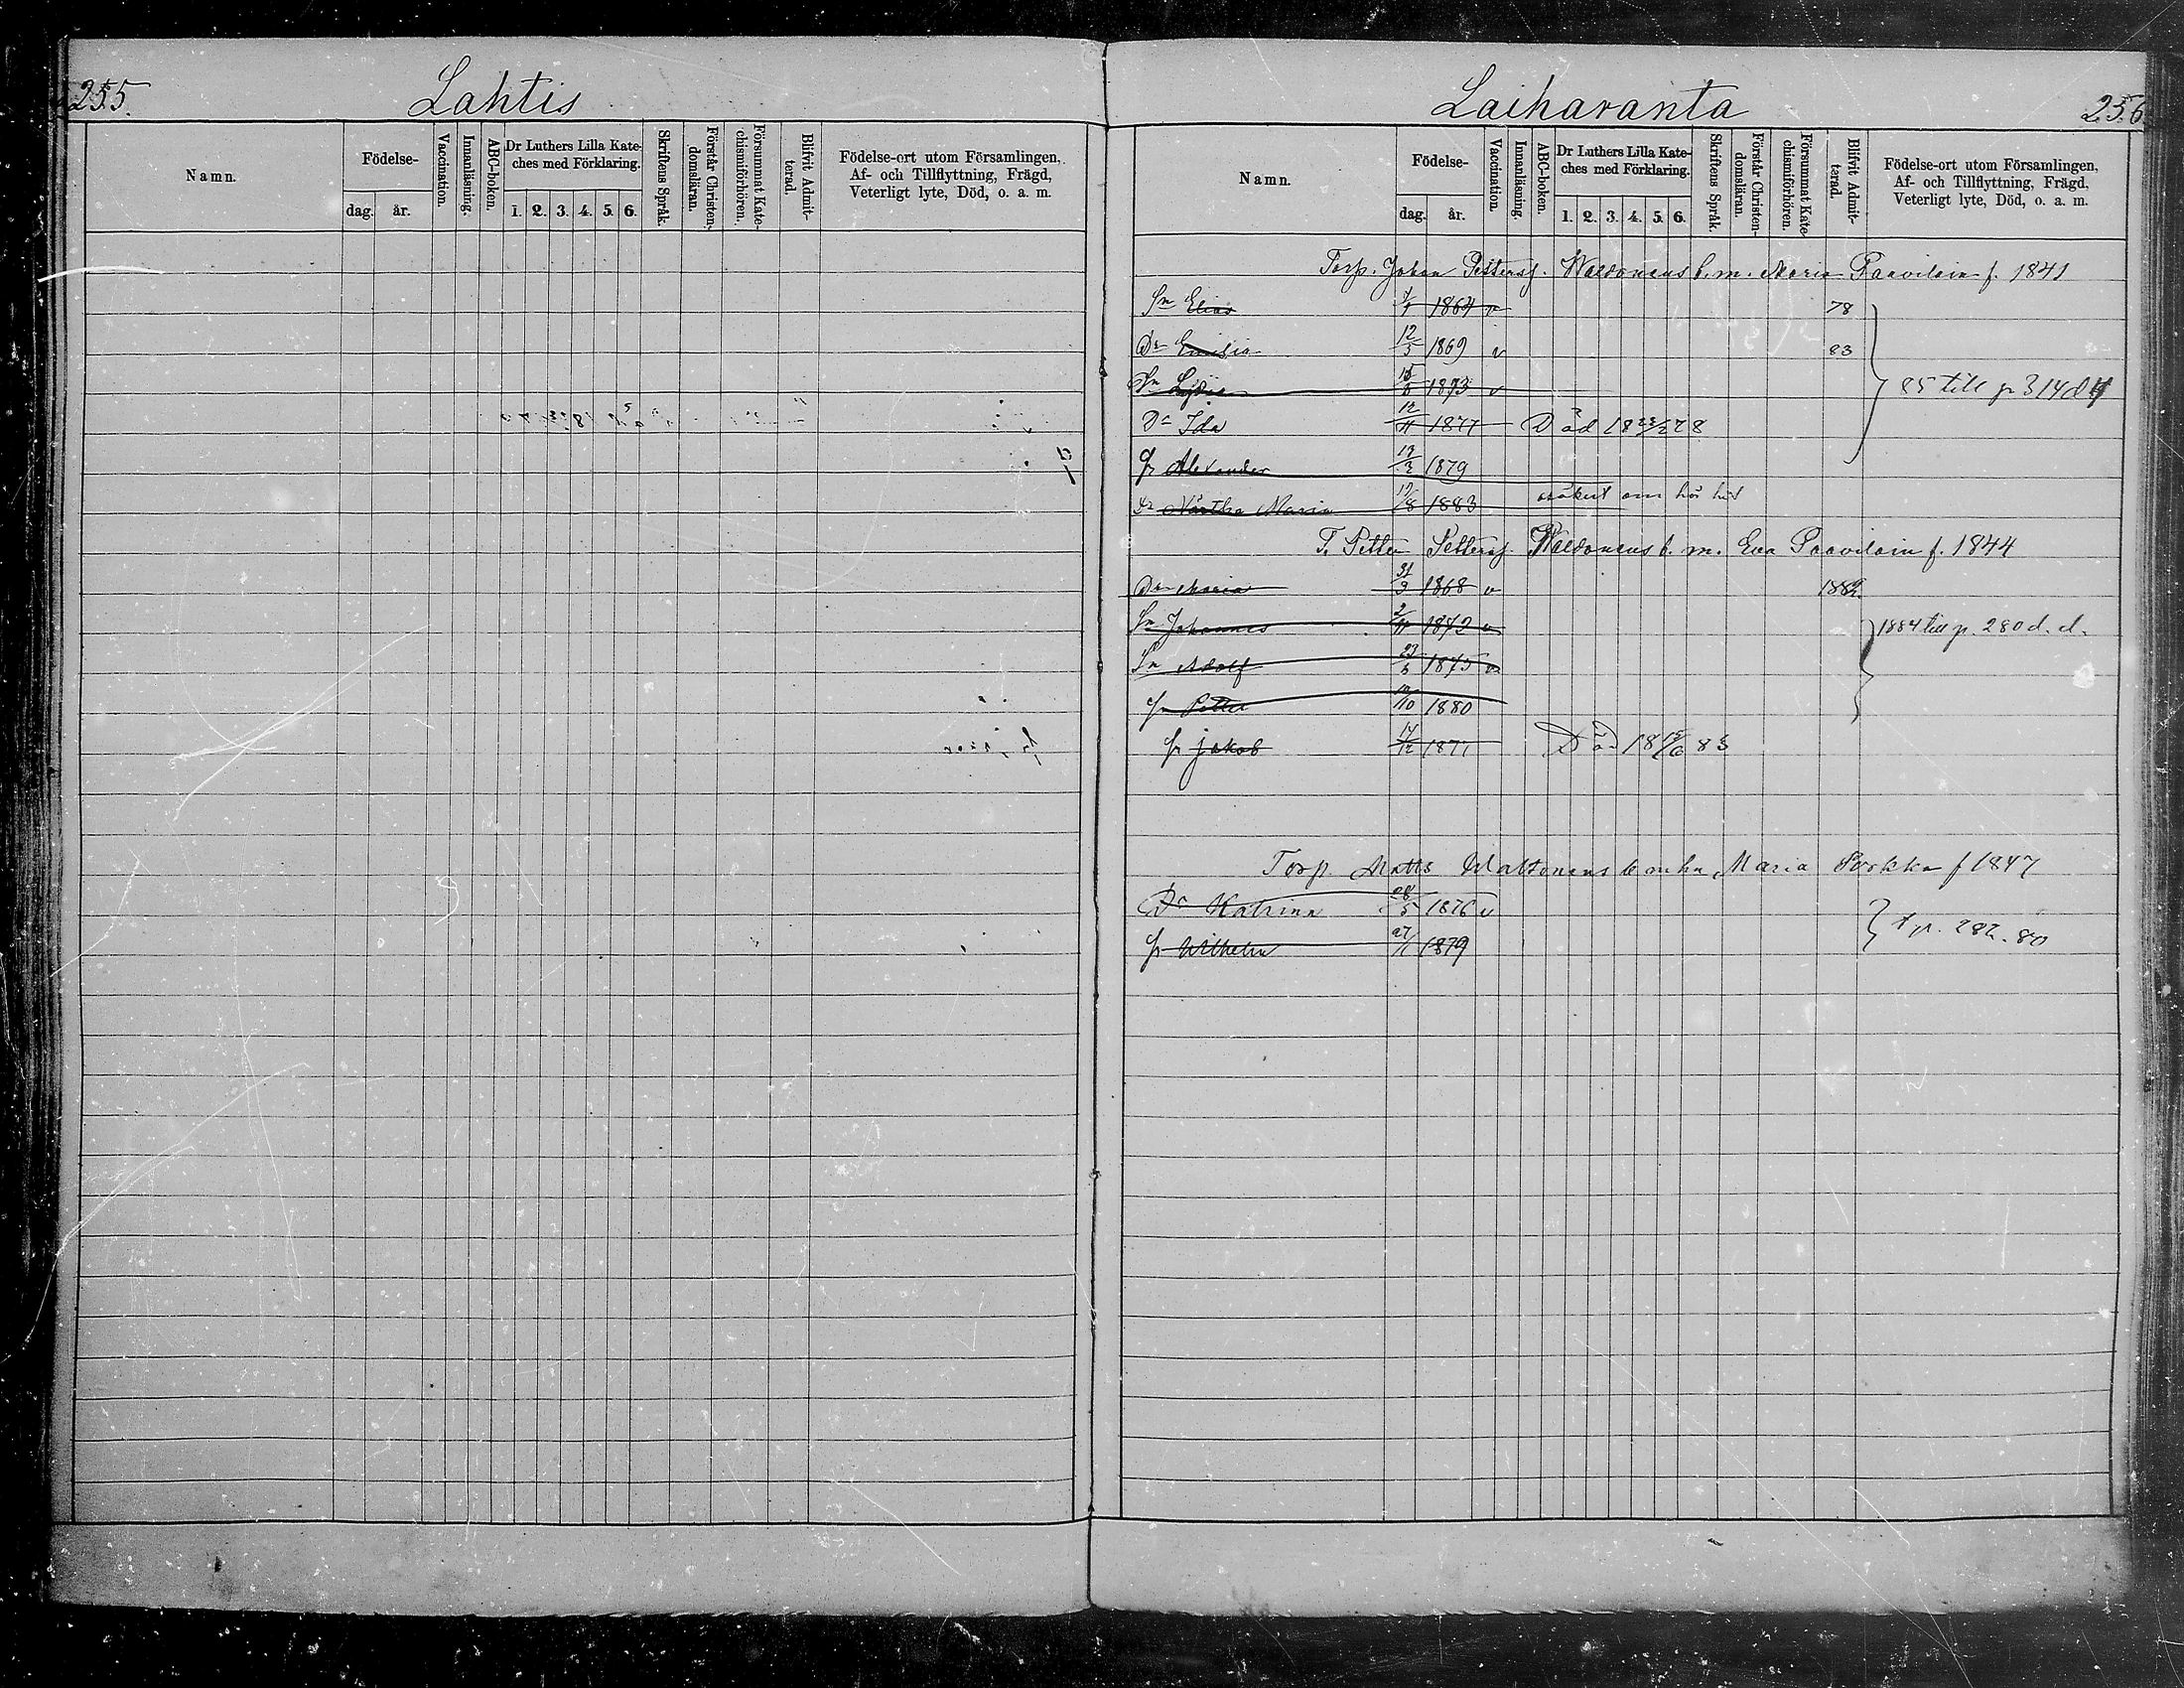 255.
Lahtis
Namn.
Födelse-
dag. år.
Vaccination.
Innanläsning.
ABC-boken.
Dr Luthers Lilla Kate-
ches med Förklaring.
1. 2. 3. 4. 5. 6.
Skriftens Språk.
Förstår Christen-
domsläran.
Försummat Kate-
chismiförhören.
Blifvit Admit-
terad.
Födelse-ort utom Församlingen,
Af- och Tillflyttning, Frägd,
Veterligt lyte, Död, o. a. m.
Laiharanta
256
Namn.
Födelse-
dag. år.
Vaccination.
Innanläsning.
ABC-boken.
Dr Luthers Lilla Kate-
ches med Förklaring.
1. 2. 3. 4. 5. 6.
Skriftens Språk.
Förstår Christen-
domsläran.
Försummat Kate-
chismiförhören.
Blifvit Admit-
terad.
Födelse-ort utom Församlingen,
Af- och Tillflyttning, Frägd,
Veterligt lyte, Död, o. a. m.
Torp. Johan Pettersf. Waldonens b. m. Maria Paavilain f. 1841
Sn Elias 1864 v 78
Dr 12/5 1869 v 83
Sn 1873 v
85 till p 314
Dr Ida 12/11 1877 Död 18 23/2 78
Alexander 1879
Maria 19/8 1883
T. Petter Pettersf. Waldonens b. m. Eva Paavilain f. 1844
Dr Maria 31/3 1868 v 1882
Sn Johannes 2/11 1872 v
1884 till p. 280 d. d.
Sn Adolf 1875 v
Petter 1880
Jakob 17/12 1877 Död 18 83
Torp. Matts Waltonens b m hu Maria Porkka f 1847
Dr Katrina 28/5 1876 v
t p. 282. 80
Wilhelm 27/1 1879